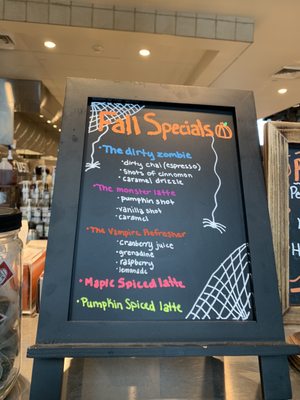 Fall Specials
• The dirty zombie
• dirty chai (espresso)
• shots of cinnamon
• caramel drizzle
• The monster latte
• pumpkin shot
• vanilla shot
• caramel
• The Vampire Refresher
• cranberry juice
• grenadine
• raspberry
• lemonade
• Maple Spiced latte
• Pumpkin Spiced latte